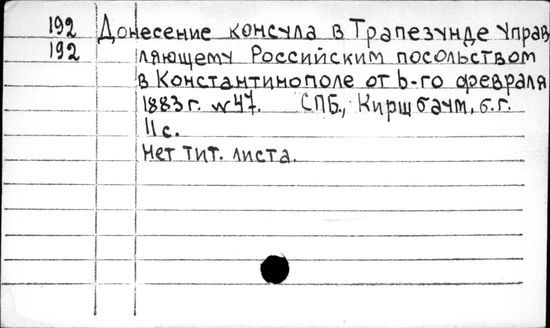 192 Донесение консула в Трапезунде управ
192 ляющему Российским посольством
в Константинополе от 6-го февраля
1883 г. №47. СПБ., Киршбаум, б.г.
11 с.
Нет тит. листа.